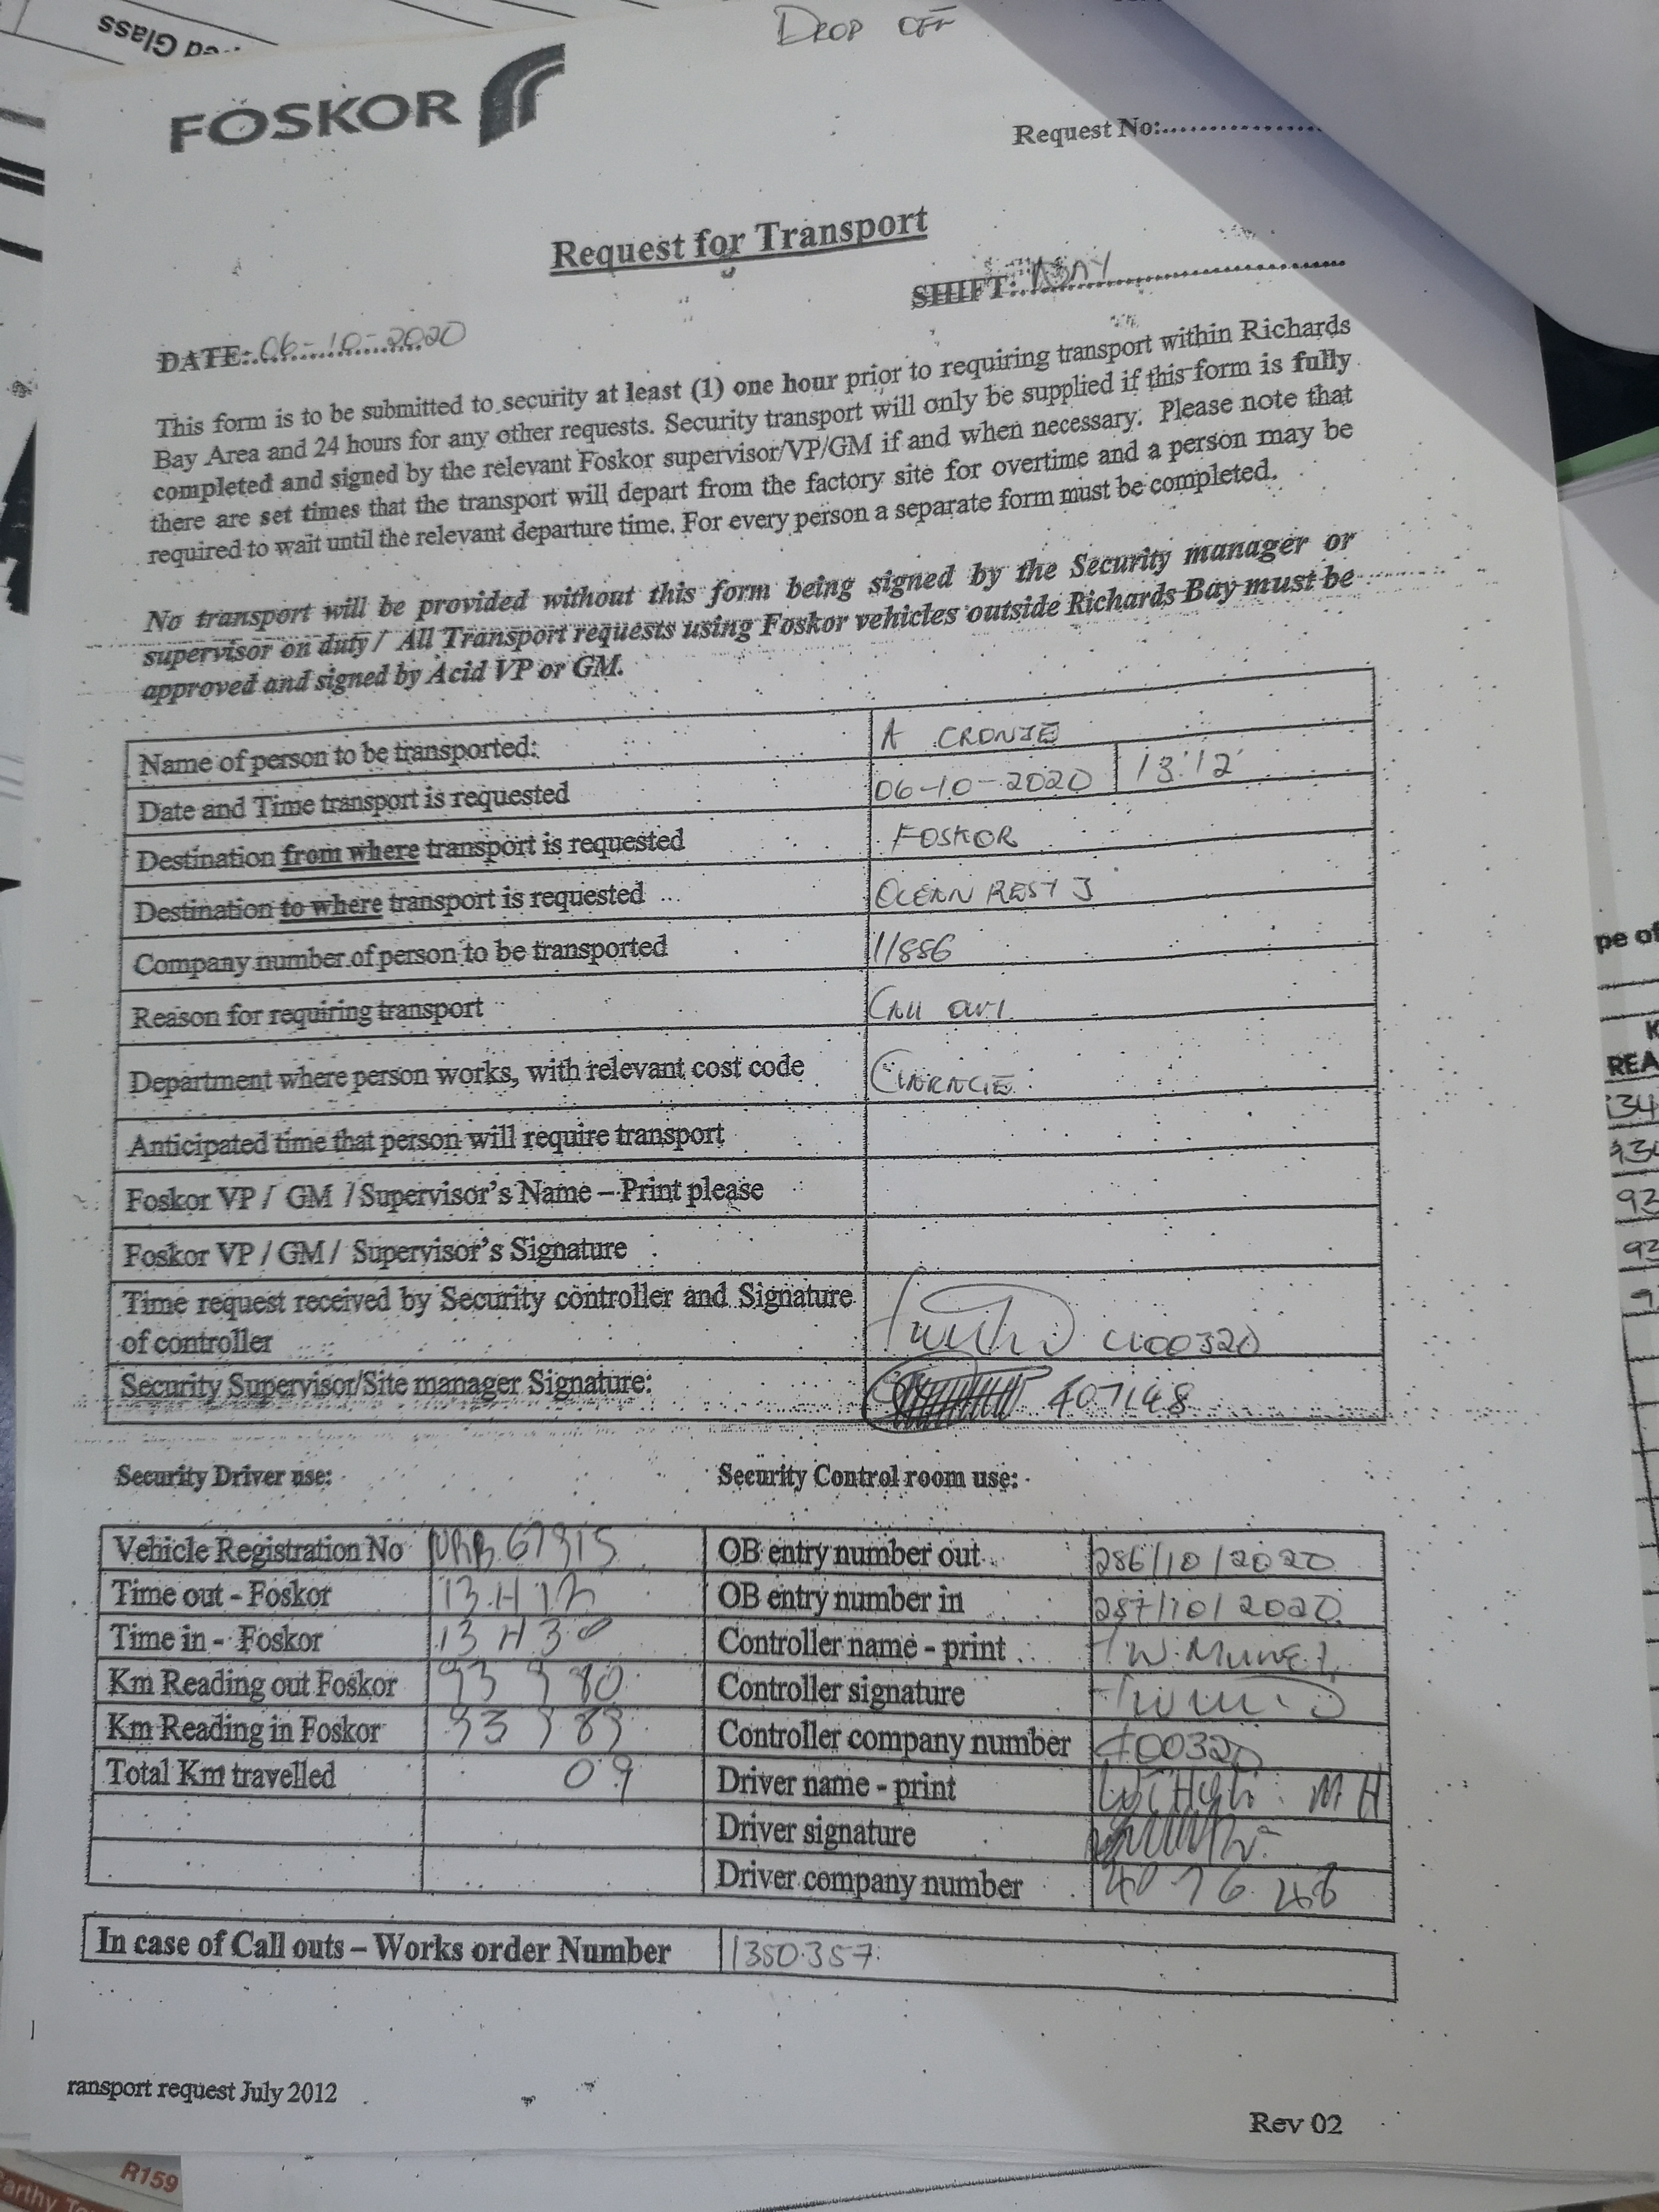 ed Glass
DROP OFF
FOSKOR
Request No:....................
Request for Transport
SHIFT: DAY
DATE: 06-10-2020
This form is to be submitted to security at least (1) one hour prior to requiring transport within Richards
Bay Area and 24 hours for any other requests. Security transport will only be supplied if this form is fully
completed and signed by the relevant Foskor supervisor/VP/GM if and when necessary. Please note that
there are set times that the transport will depart from the factory site for overtime and a person may be
required to wait until the relevant departure time. For every person a separate form must be completed.
No transport will be provided without this form being signed by the Security manager or
supervisor on duty / All Transport requests using Foskor vehicles outside Richards Bay must be
approved and signed by Acid VP or GM.
Name of person to be transported: A CRONJE
Date and Time transport is requested 06-10-2020 13:12
Destination from where transport is requested FOSKOR
Destination to where transport is requested OCEAN REST 3
Company number of person to be transported 11886
Reason for requiring transport CALL OUT
Department where person works, with relevant cost code
Anticipated time that person will require transport
Foskor VP / GM / Supervisor's Name – Print please
Foskor VP / GM / Supervisor's Signature
Time request received by Security controller and Signature
of controller 400320
Security Supervisor/Site manager Signature: 407148
Security Driver use: Security Control room use:
Vehicle Registration No NRB 67315 OB entry number out 286/10/2020
Time out - Foskor 13H12 OB entry number in 287/10/2020
Time in - Foskor 13H30 Controller name - print
Km Reading out Foskor 93 980 Controller signature
Km Reading in Foskor 93 989 Controller company number 400320
Total Km travelled 09 Driver name - print MH
Driver signature
Driver company number
In case of Call outs – Works order Number 1350357
ransport request July 2012
Rev 02
R159
pe of
REA